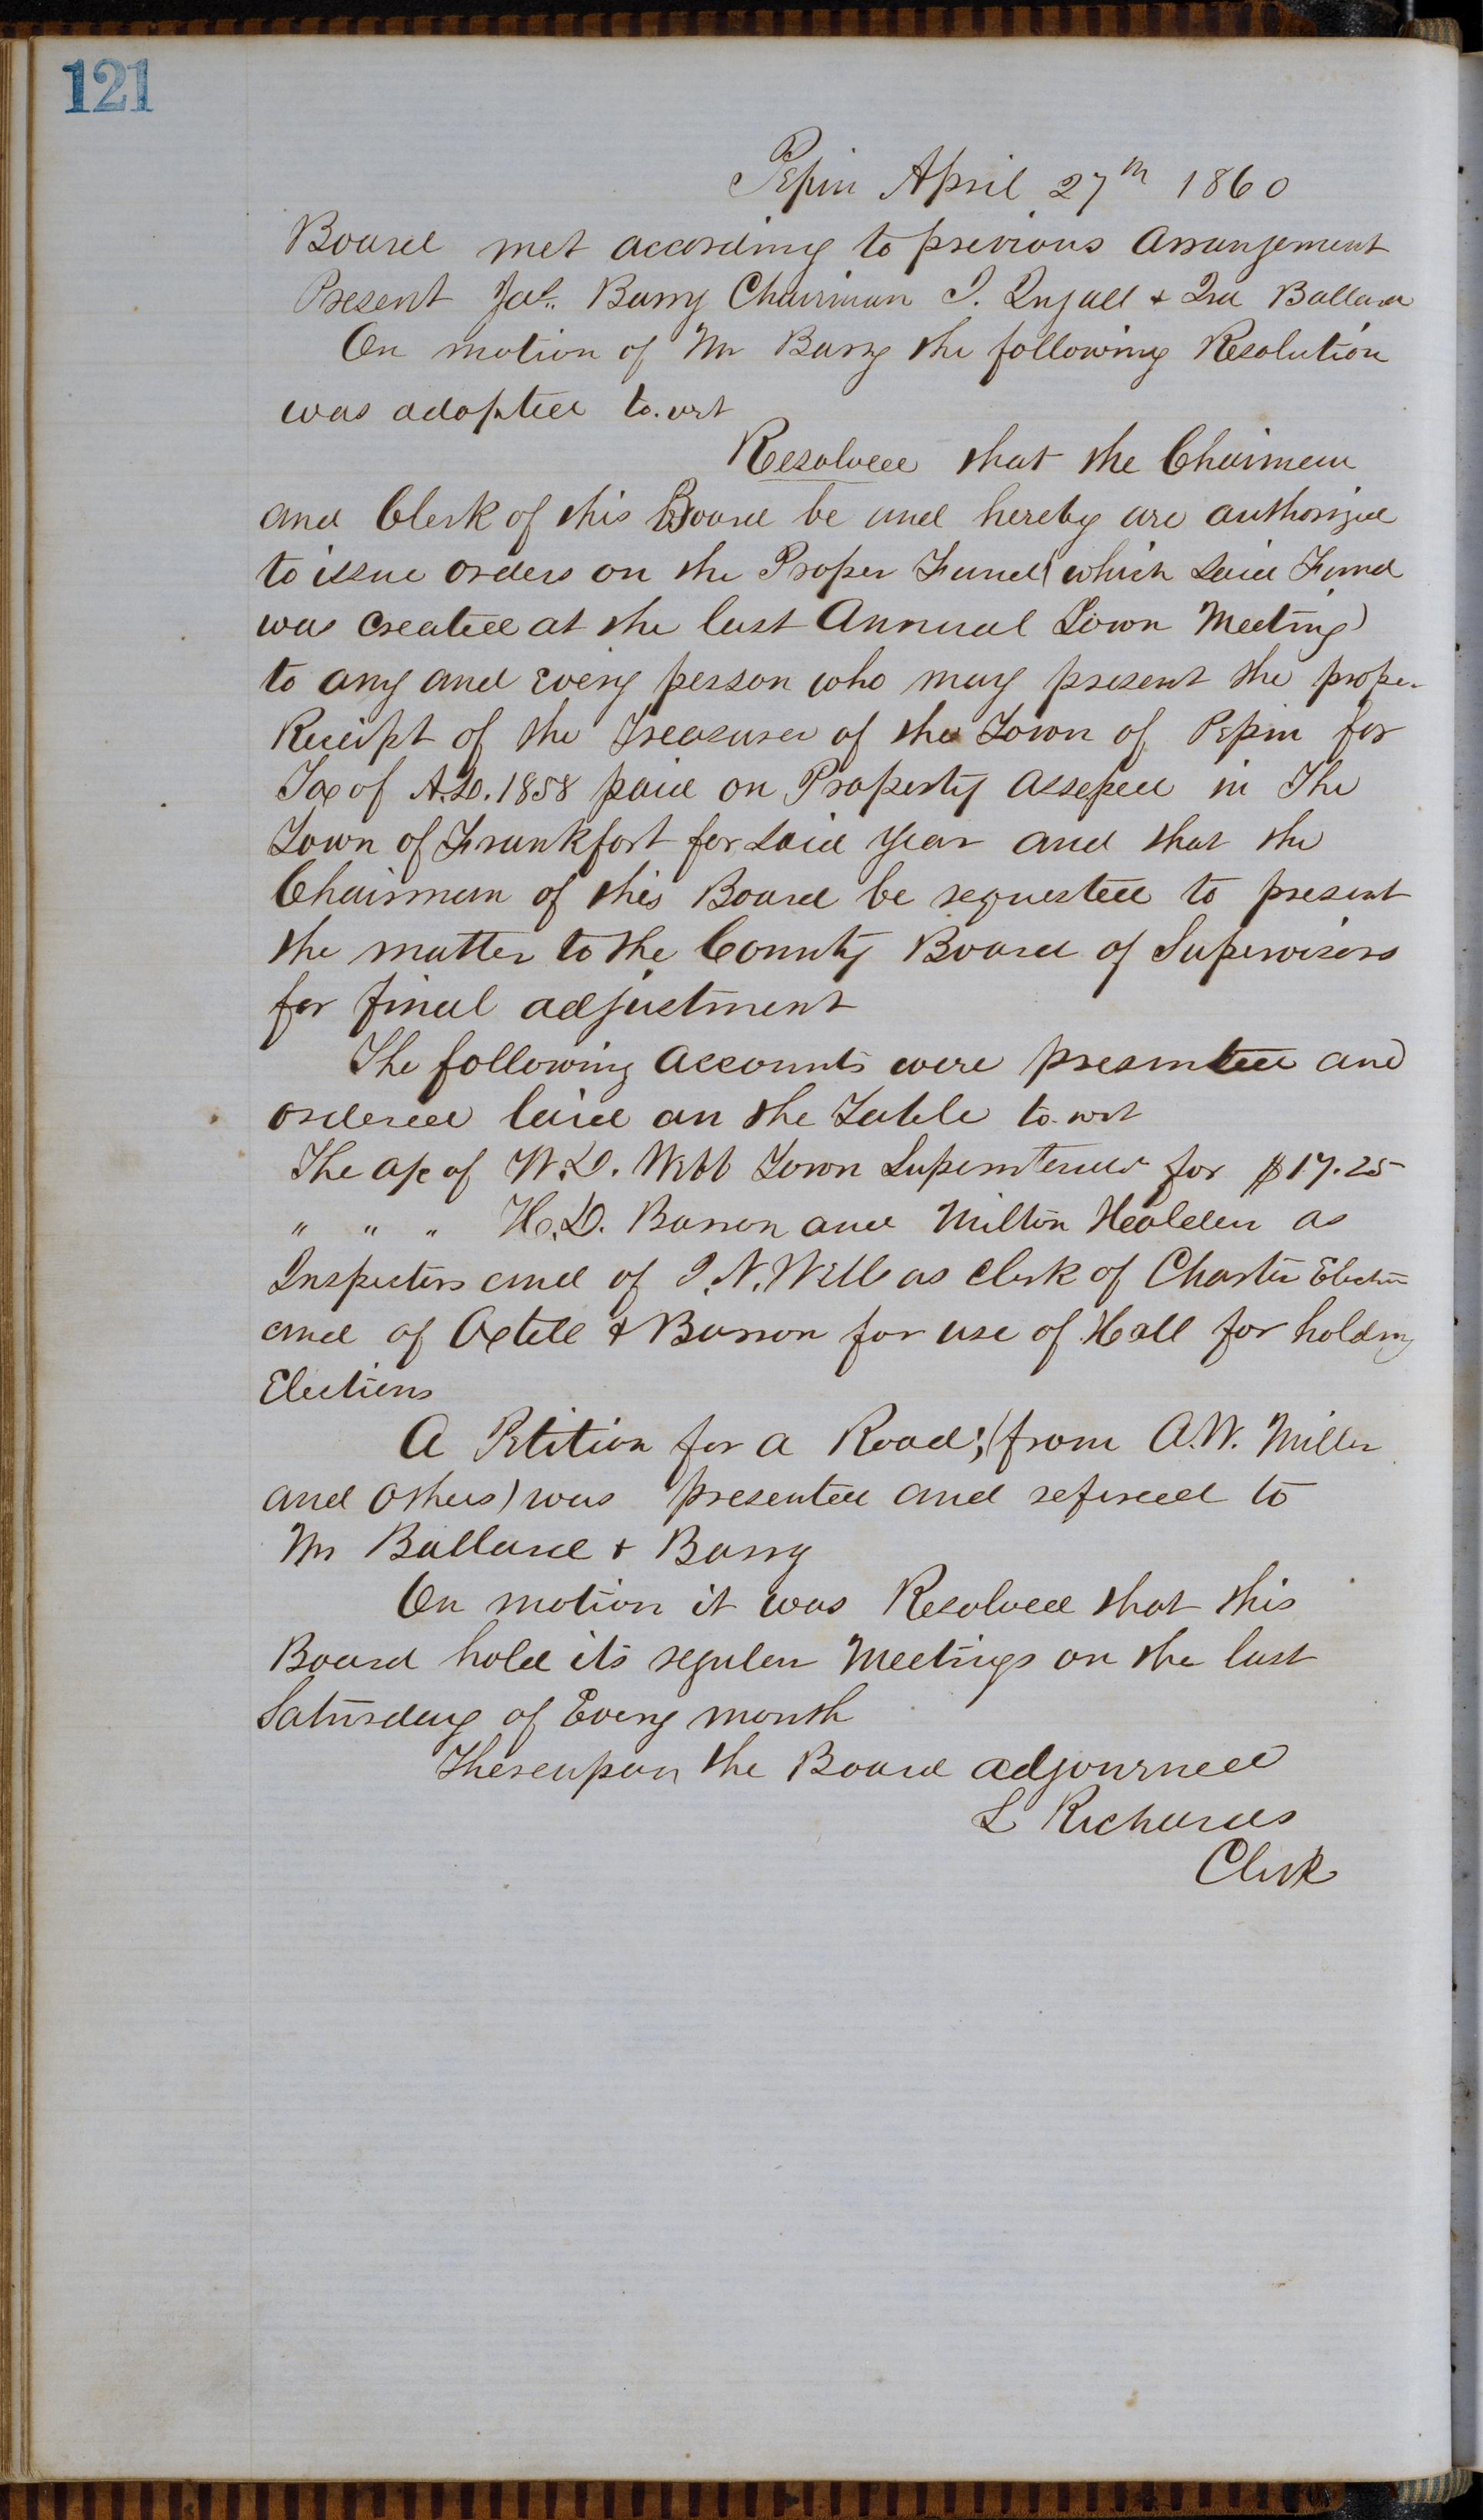 121
Pepin April 27th 1860
Board met according to previous arrangement
Present Jas. Barry Chairman I. Ingall & Ira Ballard
On motion of Mr Barry the following Resolution
was adopted to.wit
Resolved that the Chairman
and Clerk of this Board be and hereby are authorized
to issue orders on the Proper Fund (which said Fund
was created at the last Annual Town Meeting)
to any and every person who may present the proper
Receipt of the Treasurer of the Town of Pepin for
Tax of A.D. 1858 paid on Property assessed in The
Town of Frankfort for said year and that the
Chairman of this Board be requested to present
the matter to the County Board of Supervisors
for final adjustment
The following accounts were presented and
ordered laid on the Table to.wit
The a/c of W.D. Webb Town Superintendt for $17.25
" " " H.D. Barron and Milton as
Inspectors and of I.N. Wells as clerk of Charter Election
and of Axtell & Barron for use of Hall for holding
Elections
A Petition for a Road; (from A.W. Miller
and others) was presented and refered to
Mr Ballard & Barry
On motion it was Resolved that this
Board hold its regular Meetings on the last
Saturday of Every month
Thereupon the Board adjourned
L Richards
Clerk